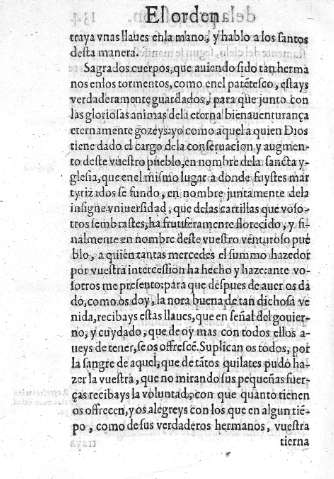 El orden
traya vnas llaues enla mano, y hablo a los santos
desta manera.
Sagrados cuerpos, que auiendo sido tan herma
nos enlos tormentos, como en el parẽtesco, estays
verdaderamente guardados, para que junto con
las gloriosas animas dela eterna bienauenturança
eternamente gozeys: yo como aquel a quien Dios
tiene dado el cargo dela conseruacion y augmen
to deste vuestro pueblo, en nombre dela sancta y-
glesia, que enel mismo lugar a donde fuystes mar
tyrizados se fundo, en nombre juntamente dela
insigne vniuersidad, que delas cartillas que voso-
tros sembrastes, ha frutiferamente florecido, y fi-
nalmente en nombre deste vuestro venturoso pue
blo, a quien tantas mercedes el summo hazedor
por vuestra intercession ha hecho y haze: ante vo-
sotros me presento: para que despues de auer os da
do, como os doy, la nora buena de tan dichosa ve
nida, recibays estas llaues, que en señal del gouier-
no, y cuydado, que de oy mas con todos ellos a-
ueys de tener, se os offrescẽ. Suplican os todos, por
la sangre de aquel, que de tãtos quilates pudo ha-
zer la vuestra, que no mirando sus pequeñas fuer-
ças recibays la voluntad, con que quanto tienen
os offrecen, y os alegreys con los que en algun tiẽ-
po, como de sus verdaderos hermanos, vuestra
tierna